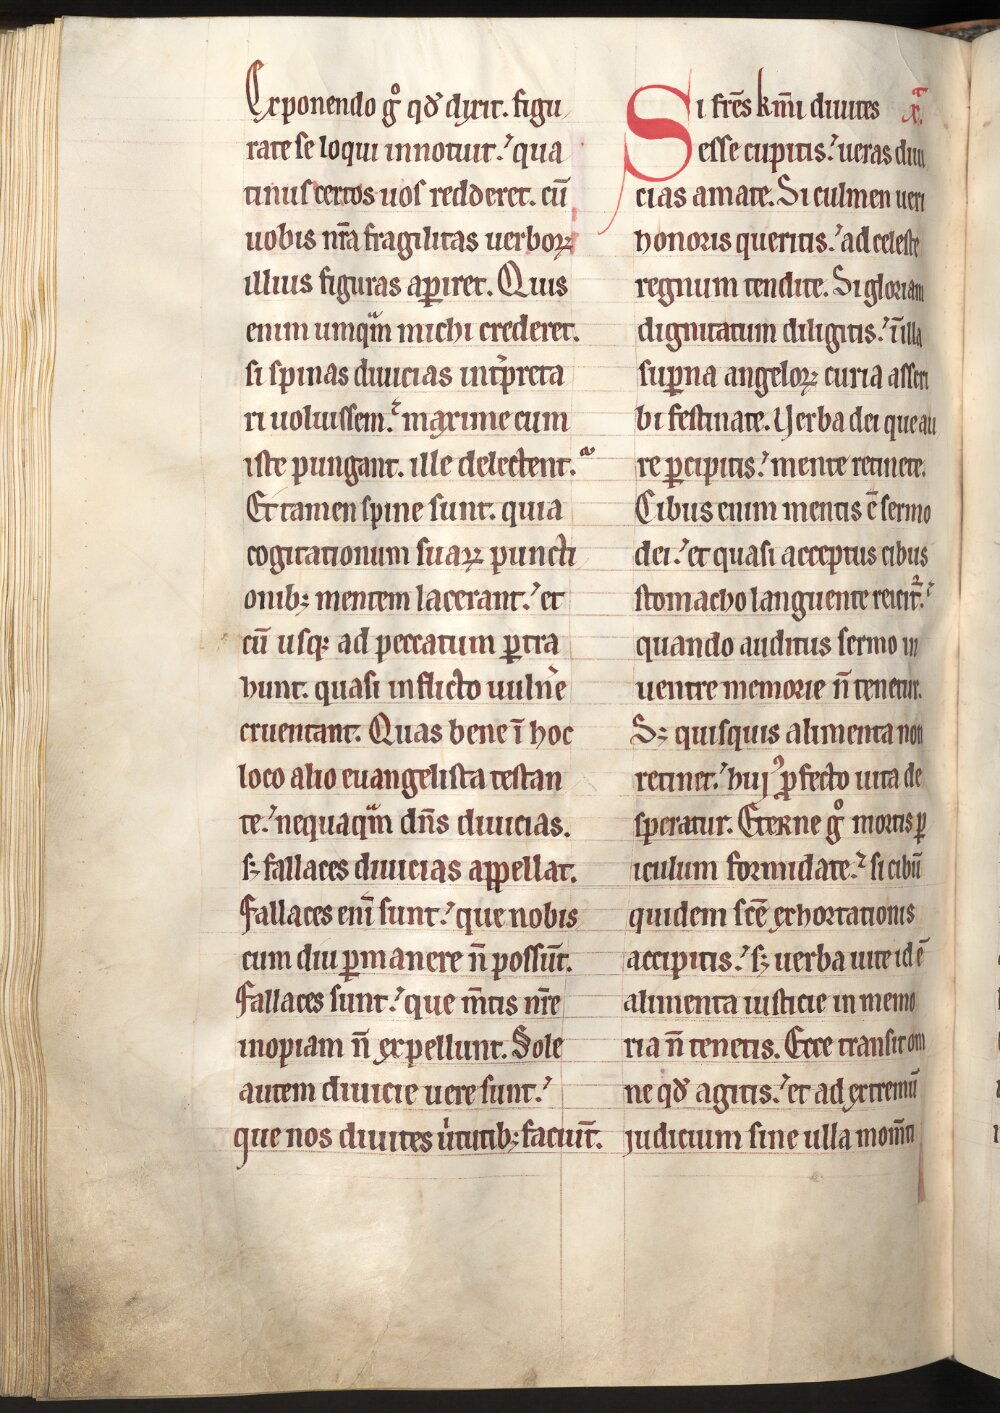 Exponendo gͦ qđ dixit. figu
rate se loqui innotuit.ˀ qua
tinus certos uos redderet. cū
uobis nr̄a fragilitas uerboꝝ
illius figuras aꝑiret. Quis
enim umqᷓm michi crederet.
si spinas diuicias int̾preta
ri uoluissem.ˀ maxime cum
iste pungant. ille delectent.ᷓ
Et tamen spine sunt. quia
cogitationum suaꝝ puncti
onibꝫ mentem lacerant.ˀ et
cū usqꝫ ad peccatum ꝑtra
hunt. quasi inflicto uuln̾e
cruentant. Quas bene ī hoc
loco alio euangelista testan
te.ˀ nequaqᷓm dn̄s diuicias.
sꝫ fallaces diuicias appellat.
Fallaces eni̅ sunt.ˀ que nobis
cum diu ꝑmanere n̄ possūt.
Fallaces sunt.ˀ que m̄tis nr̄e
inopiam n̄ expellunt. Sole
autem diuicie uere sunt.ˀ
que nos diuites uͥtutibꝫ faciūt.
Si fr̄es km̄i diuites xͣ.
esse cupitis.ˀ ueras diui
cias amate. Si culmen ueri
honoris queritis.ˀ ad celeste
regnum tendite. Si gloriam
dignitatum diligitis.ˀ ī illa
suꝑna angeloꝝ curia asseri
bi festinate. Verba dei que au
re ꝑcipitis.ˀ mente retinete.
Cibus enim mentis ē sermo
dei.ˀ et quasi acceptus cibus
stomacho languente reicit᷑.ˀ
quando auditus sermo in
uentre memorie n̄ tenetur.
Sꝫ quisquis alimenta non
retinet.ˀ huiꝰ ꝓfecto uita de
speratur. Eterne gͦ mortis ꝑ
iculum formidate.ˀ si cibū
quidem sc̄e exhortationis
accipitis.ˀ sꝫ uerba uite id ē
alimenta iusticie in memo
ria n̄ tenetis. Ecce transit om
ne qđ agitis.ˀ et ad extremū
judicium sine ulla mom̄ti